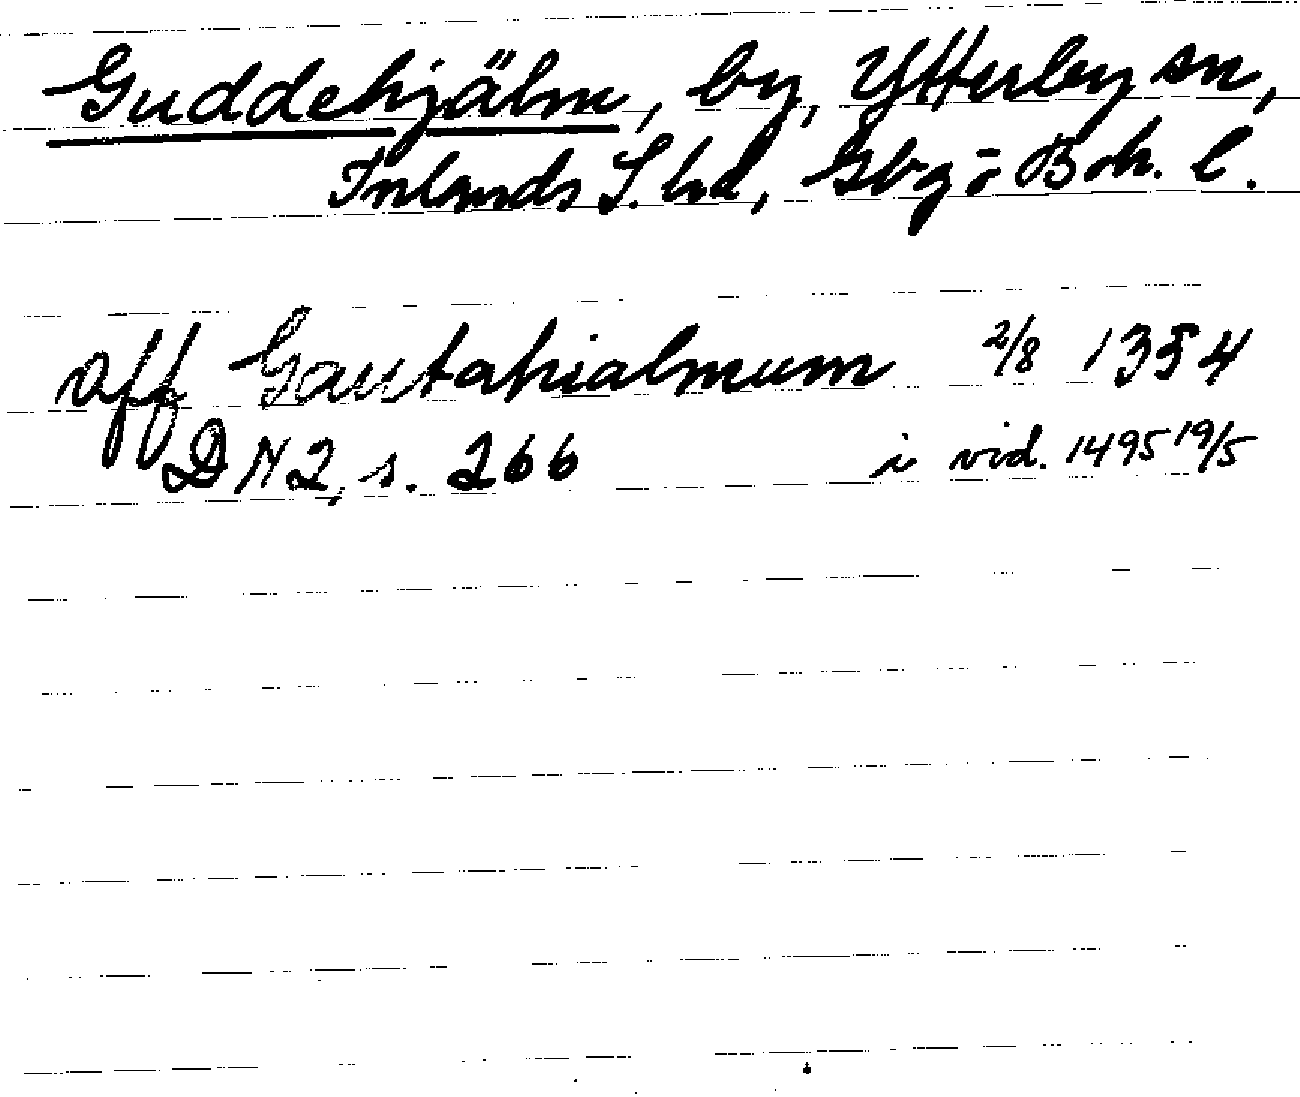 Guddehjälm, by, Ytterby sn,
Inlands S. hd, Gbg o Boh. l.
aff Gautahialmum 2/8 1354
DN 2, s. 266 i vid. 1495 19/5